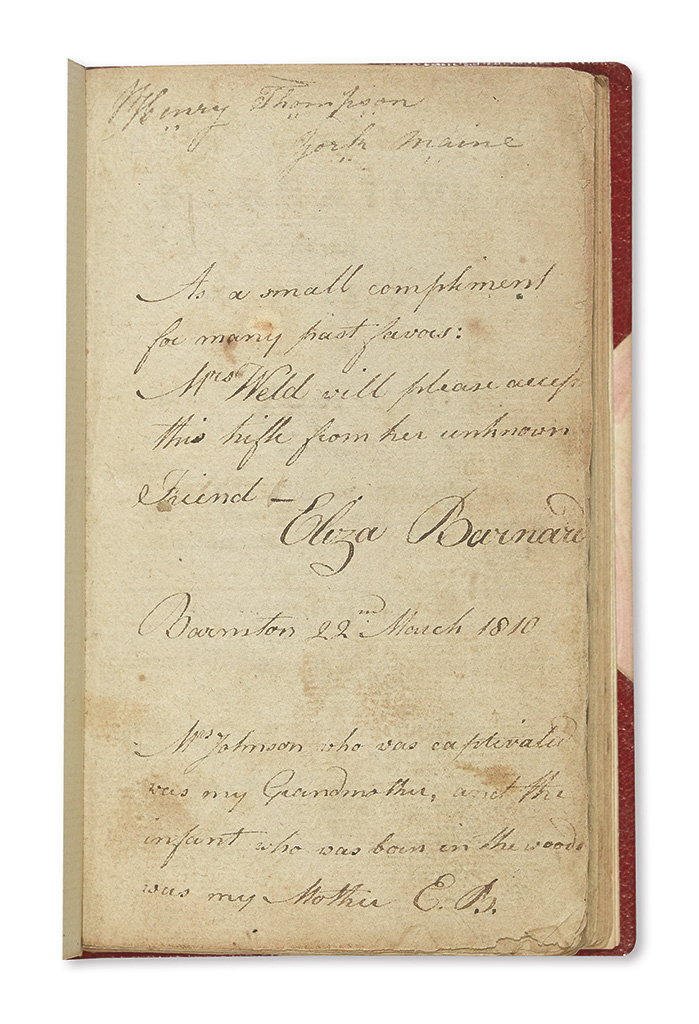 Henry Thompson
York Maine
As a small compliment
for many past favors:
Mrs Weld will please accept
this trifle from her unknown
Friend —
Eliza Barnard
Barnston 22nd March 1810
Mrs Johnson who was captivated
was my Grandmother, and the
infant who was born in the woods
was my Mother E. B.